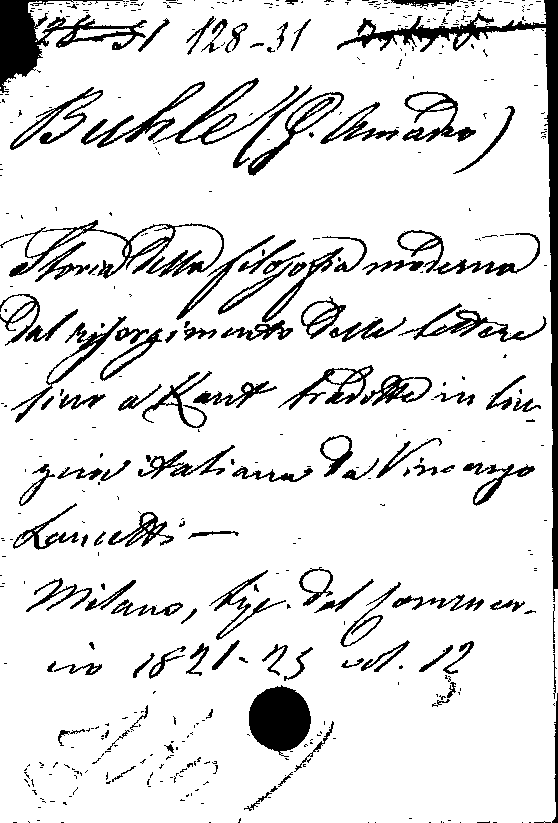 128-31 128-31
Buhle (G. Amadio)
Storia della filosofia moderna
dal risorgimento delle lettere
fino a Kant tradotta in lin-
gua italiana da Vincenzo
Lancetti —
Milano, tip. del commer-
cio 1821-25 vol. 12